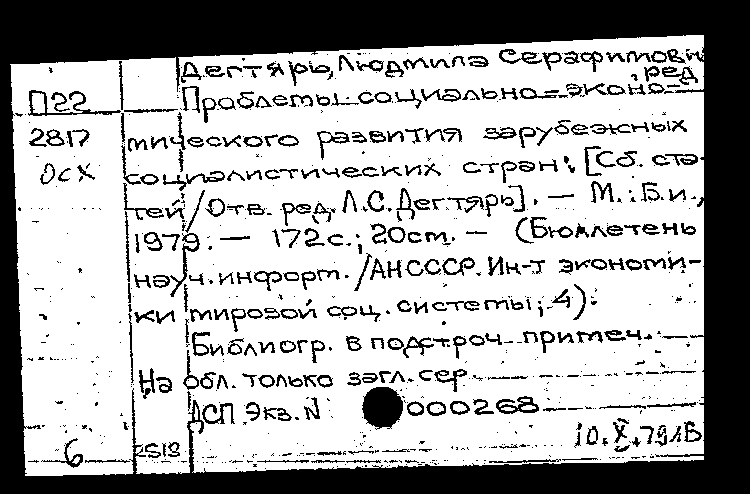 Дегтярь, Людмила Серафимовн
, ред
П22 Проблемы социально-эконо-
2817 мического развития зарубежных
ОсХ социалистических стран: [Сб. ста-
тей / Отв. ред. Л.С. Дегтярь]. — М.: Б.и.,
1979. — 172с.; 20см. — (Бюллетень
науч. информ. / АН СССР. Ин-т экономи-
ки мировой соц. системы; 4).
Библиогр. в подстроч. примеч.
На обл. только загл. сер.
ДСП Экз. N 000268
10.X.79
6